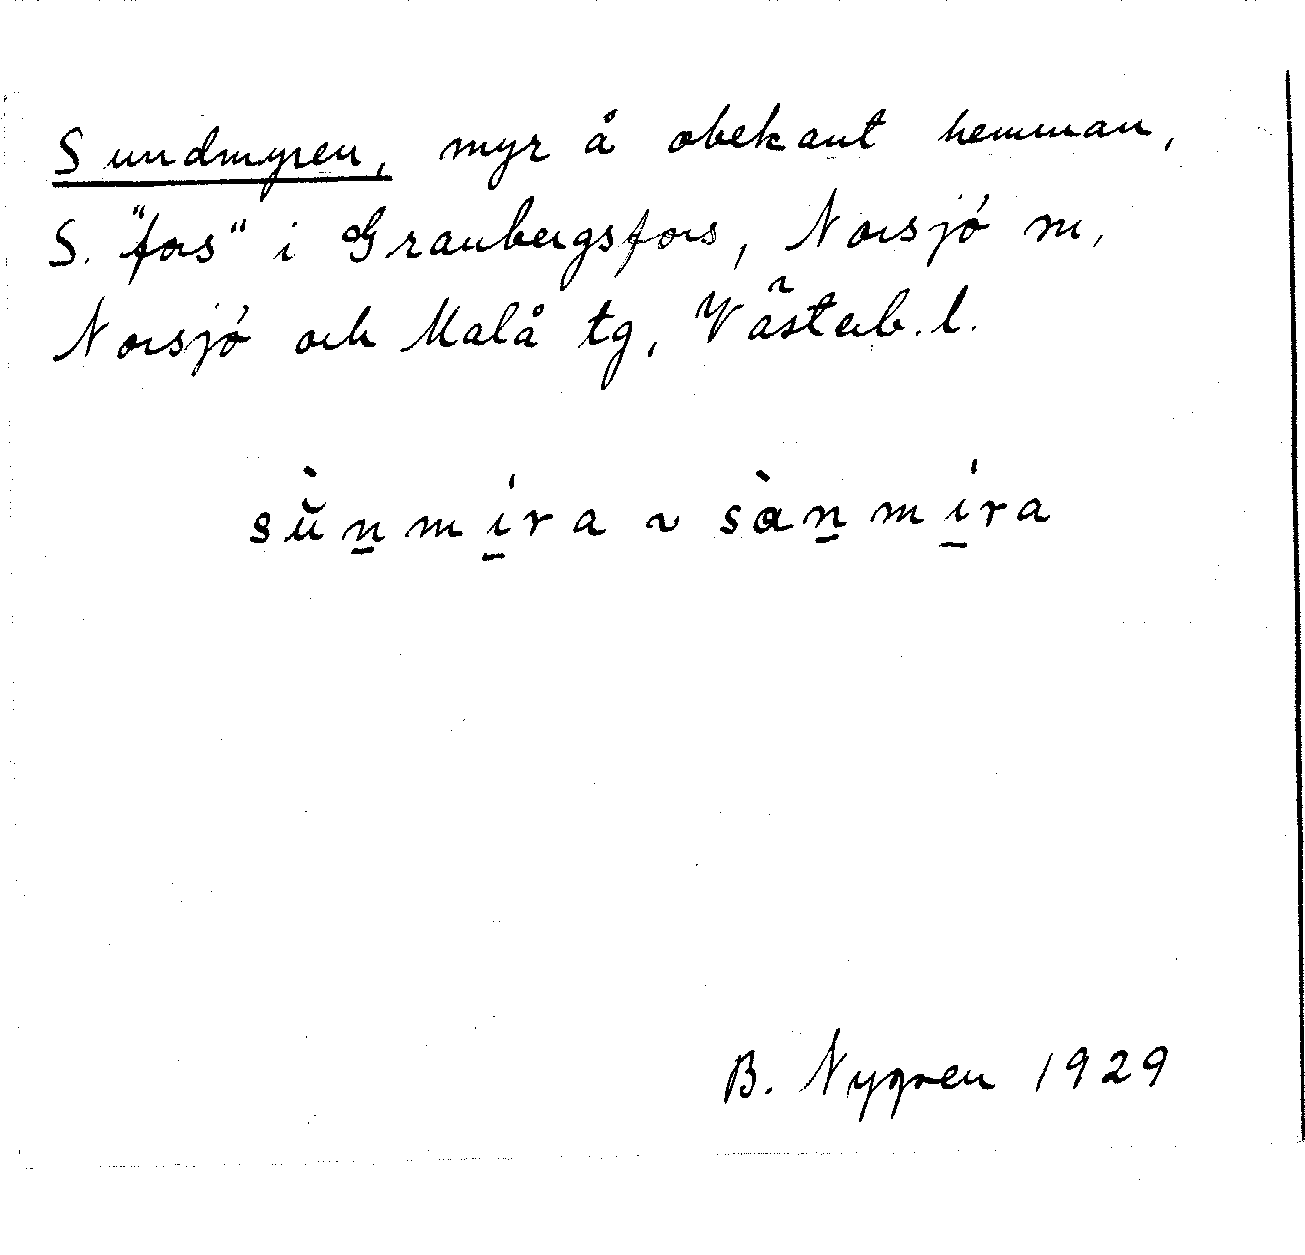 Sundmyren, myr å obekant hemman,
S. "fors" i Granbergsfors, Norsjö sn,
Norsjö och Malå tg, Västerb. l.
sŭ̀n̲mí̲ra ~ sàn̲mí̲ra
B. Nygren 1929